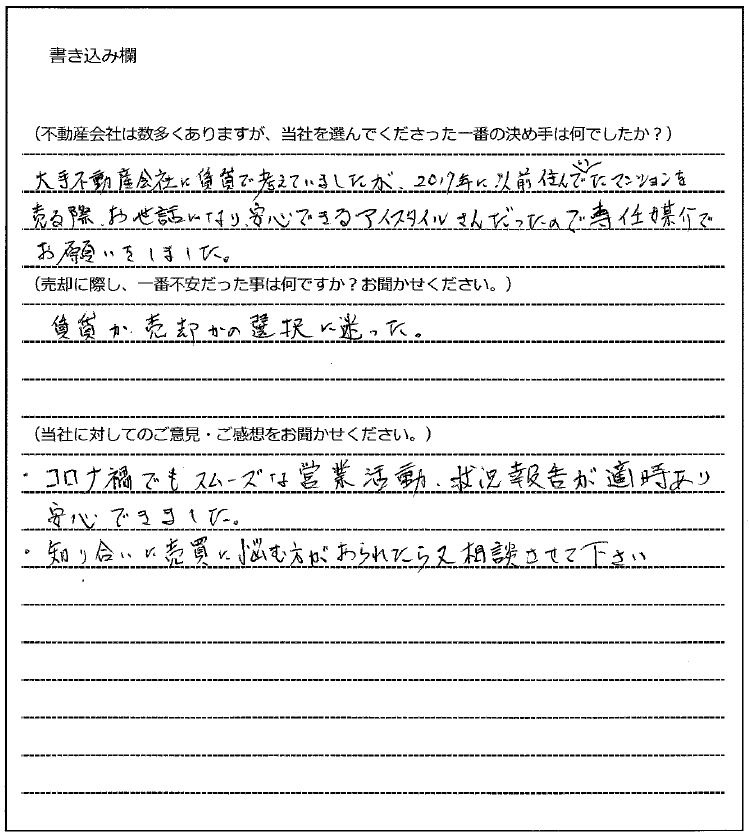 書き込み欄
（不動産会社は数多くありますが、当社を選んでくださった一番の決め手は何でしたか？）
大手不動産会社に賃貸で考えていましたが、2017年に以前住んでいたマンションを
売る際、お世話になり、安心できるアイスタイルさんだったので専任媒介で
お願いをしました。
（売却に際し、一番不安だった事は何ですか？お聞かせください。）
賃貸か売却かの選択に迷った。
（当社に対してのご意見・ご感想をお聞かせください。）
・コロナ禍でもスムーズな営業活動、状況報告が適時あり
安心できました。
・知り合いに売買に悩む方がおられたら又相談させて下さい